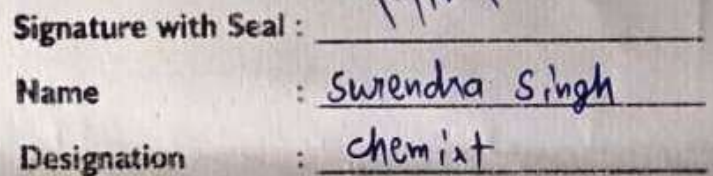 Signature with Seal :
Name : Surendra Singh
Designation : Chemist